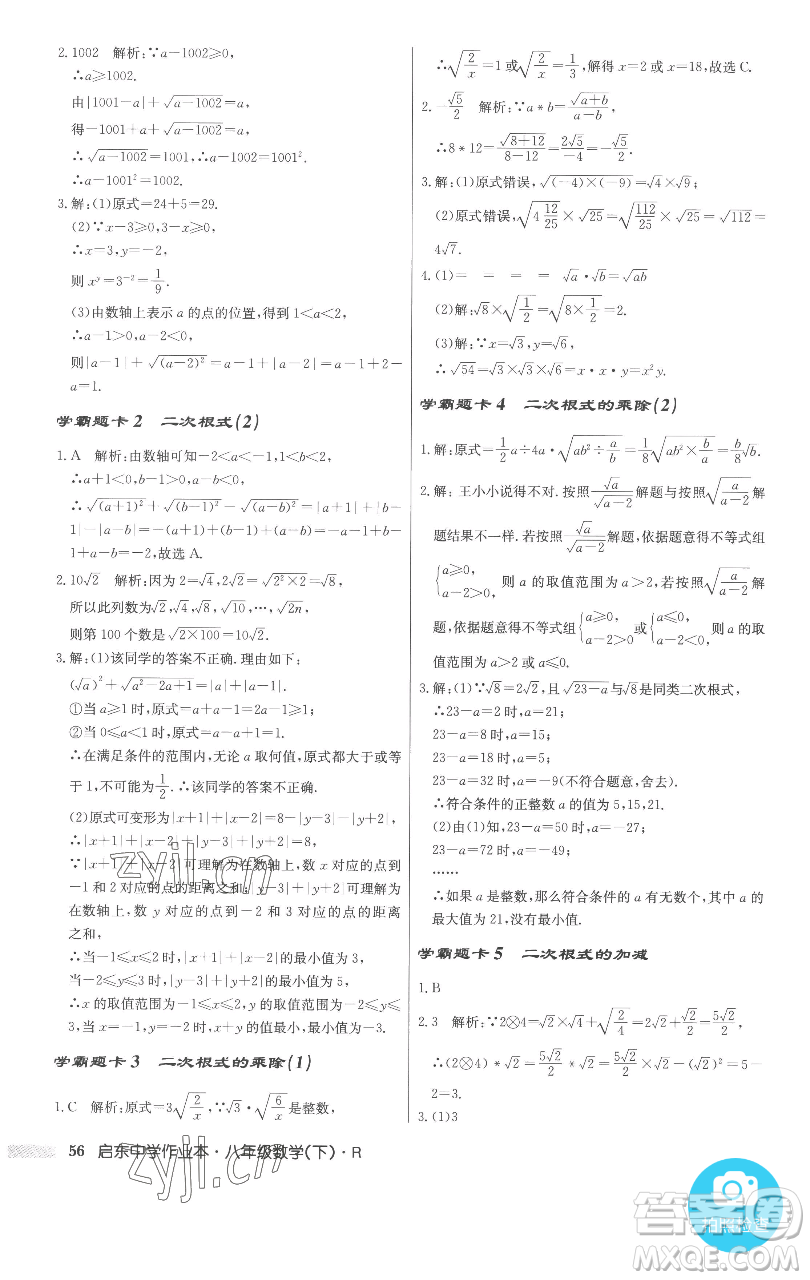 2. 1002 解析:∵a-1002≥0,
∴a≥1002.
由|1001-a|+√(a-1002)=a,
得-1001+a+√(a-1002)=a,
∴√(a-1002)=1001,∴a-1002=1001².
∴a-1001²=1002.
3. 解:(1)原式=24+5=29.
(2)∵x-3≥0,3-x≥0,
∴x=3,y=-2.
则xʸ=3⁻²=1/9.
(3)由数轴上表示a的点的位置,得到1<a<2,
∴a-1>0,a-2<0,
则|a-1|+√((a-2)²)=|a-1|+|a-2|=a-1+2-a=1.
学霸题卡2 二次根式(2)
1. A 解析:由数轴可知-2<a<-1,1<b<2,
∴a+1<0,b-1>0,a-b<0,
∴√((a+1)²)+√((b-1)²)-√((a-b)²)=|a+1|+|b-
1|-|a-b|=-(a+1)+(b-1)+(a-b)=-a-1+b-
1+a-b=-2,故选A.
2. 10√2 解析:因为2=√4,2√2=√(2²×2)=√8,
所以此列数为√2,√4,√8,√10,…,√(2n),
则第100个数是√(2×100)=10√2.
3. 解:(1)该同学的答案不正确.理由如下:
(√a)²+√(a²-2a+1)=|a|+|a-1|,
①当a≥1时,原式=a+a-1=2a-1≥1;
②当0≤a<1时,原式=a-a+1=1.
∴在满足条件的范围内,无论a取何值,原式都大于或等
于1,不可能为1/2.∴该同学的答案不正确.
(2)原式可变形为|x+1|+|x-2|=8-|y-3|-|y+2|,
∴|x+1|+|x-2|+|y-3|+|y+2|=8,
∵|x+1|+|x-2|可理解为在数轴上,数x对应的点到
-1和2对应的点的距离之和,|y-3|+|y+2|可理解为
在数轴上,数y对应的点到-2和3对应的点的距离
之和,
∴当-1≤x≤2时,|x+1|+|x-2|的最小值为3,
当-2≤y≤3时,|y-3|+|y+2|的最小值为5,
∴x的取值范围为-1≤x≤2,y的取值范围为-2≤
y≤3,故x+y的值最大值为5,最小值为-3.
学霸题卡3 二次根式的乘除(1)
1. C 解析:原式=3√(2/x),∵√3·√(6/x)是整数,
∴√(2/x)=1或√(2/x)=1/3,解得x=2或x=18,故选C.
2. -√5/2 解析:∵a*b=√(a+b)/(a-b),
∴8*12=√(8+12)/(8-12)=2√5/-4=-√5/2.
3. 解:(1)原式错误,√((-4)×(-9))=√4×√9;
(2)原式错误,√(4 12/25)×√25=√(112/25)×√25=√112=
4√7.
4. (1)= = = √a·√b=√ab
(2)解:√8×√(1/2)=√(8×1/2)=2.
(3)解:∵x=√3,y=√6,
∴√54=√3×√3×√6=x·x·y=x²y.
学霸题卡4 二次根式的乘除(2)
1. 解:原式=1/2 a÷4a·√(ab²÷a/b)=1/8√(ab²×b/a)=b/8√b.
2. 解:王小小说得不对.按照√a/√(a-2)解题与按照√(a/(a-2))解
题结果不一样.若按照√a/√(a-2)解题,依据题意得不等式组
{a≥0, a-2>0, 则a的取值范围为a>2,若按照√(a/(a-2))解
题,依据题意得不等式组{a≥0, a-2>0 或{a≤0, a-2<0, 则a的取
值范围为a>2或a≤0.
3. 解:(1)∵√8=2√2,且√(23-a)与√8是同类二次根式,
∴23-a=2时,a=21;
23-a=8时,a=15;
23-a=18时,a=5;
23-a=32时,a=-9(不符合题意,舍去).
∴符合条件的正整数a的值为5,15,21.
(2)由(1)知,23-a=50时,a=-27;
23-a=72时,a=-49;
……
∴如果a是整数,那么符合条件的a有无数个,其中a的
最大值为21,没有最小值.
学霸题卡5 二次根式的加减
1. B
2. 3 解析:∵2⊗4=√2×√4+√(2/4)=2√2+√2/2=5√2/2,
∴(2⊗4)*√2=5√2/2*√2=5√2/2×√2-(√2)²=5-
2=3.
3. (1)3
56 启东中学作业本·八年级数学(下)·R
zyjl.cn
zyjl.cn
答案卷
拍照检查
MXQE.COM